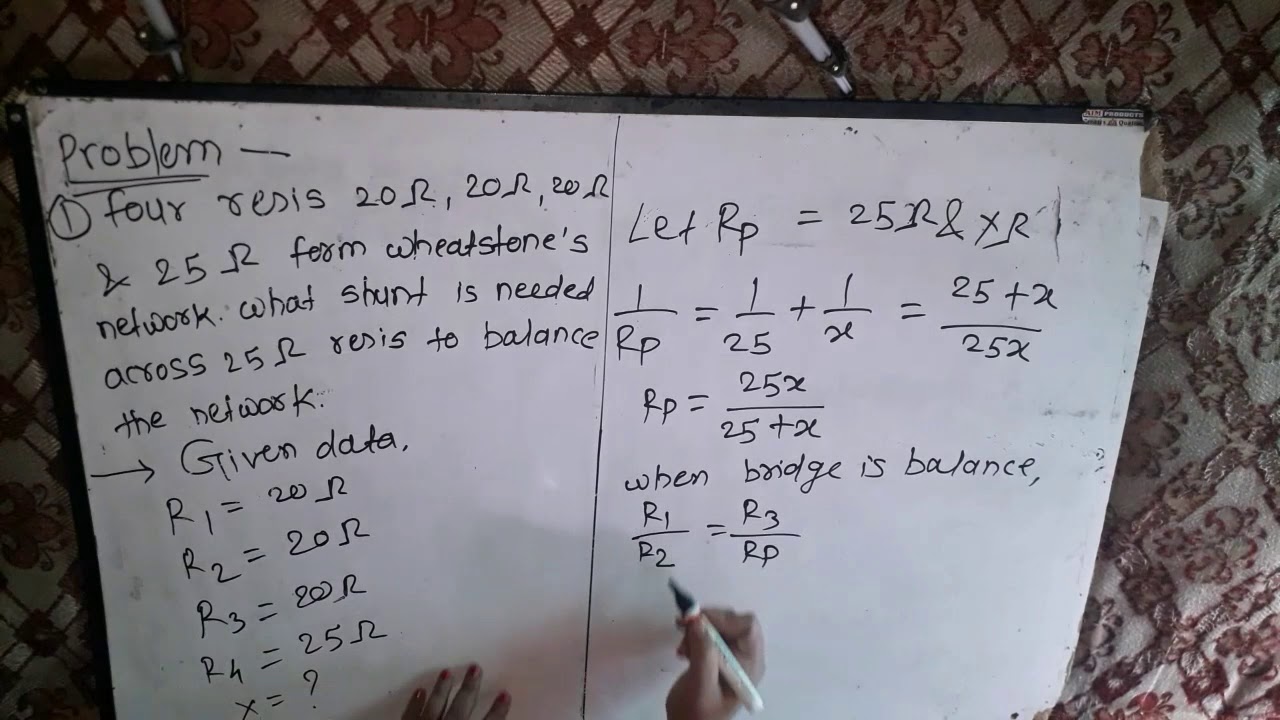 Problem —
① four resis 20Ω, 20Ω, 20Ω
& 25 Ω form wheatstone's
network. what shunt is needed
across 25Ω resis to balance
the network.
→ Given data,
R1 = 20Ω
R2 = 20Ω
R3 = 20Ω
R4 = 25Ω
x = ?
Let Rp = 25Ω & xΩ
1/Rp = 1/25 + 1/x = 25+x/25x
Rp = 25x/25+x
when bridge is balance,
R1/R2 = R3/Rp
PRODUCTS